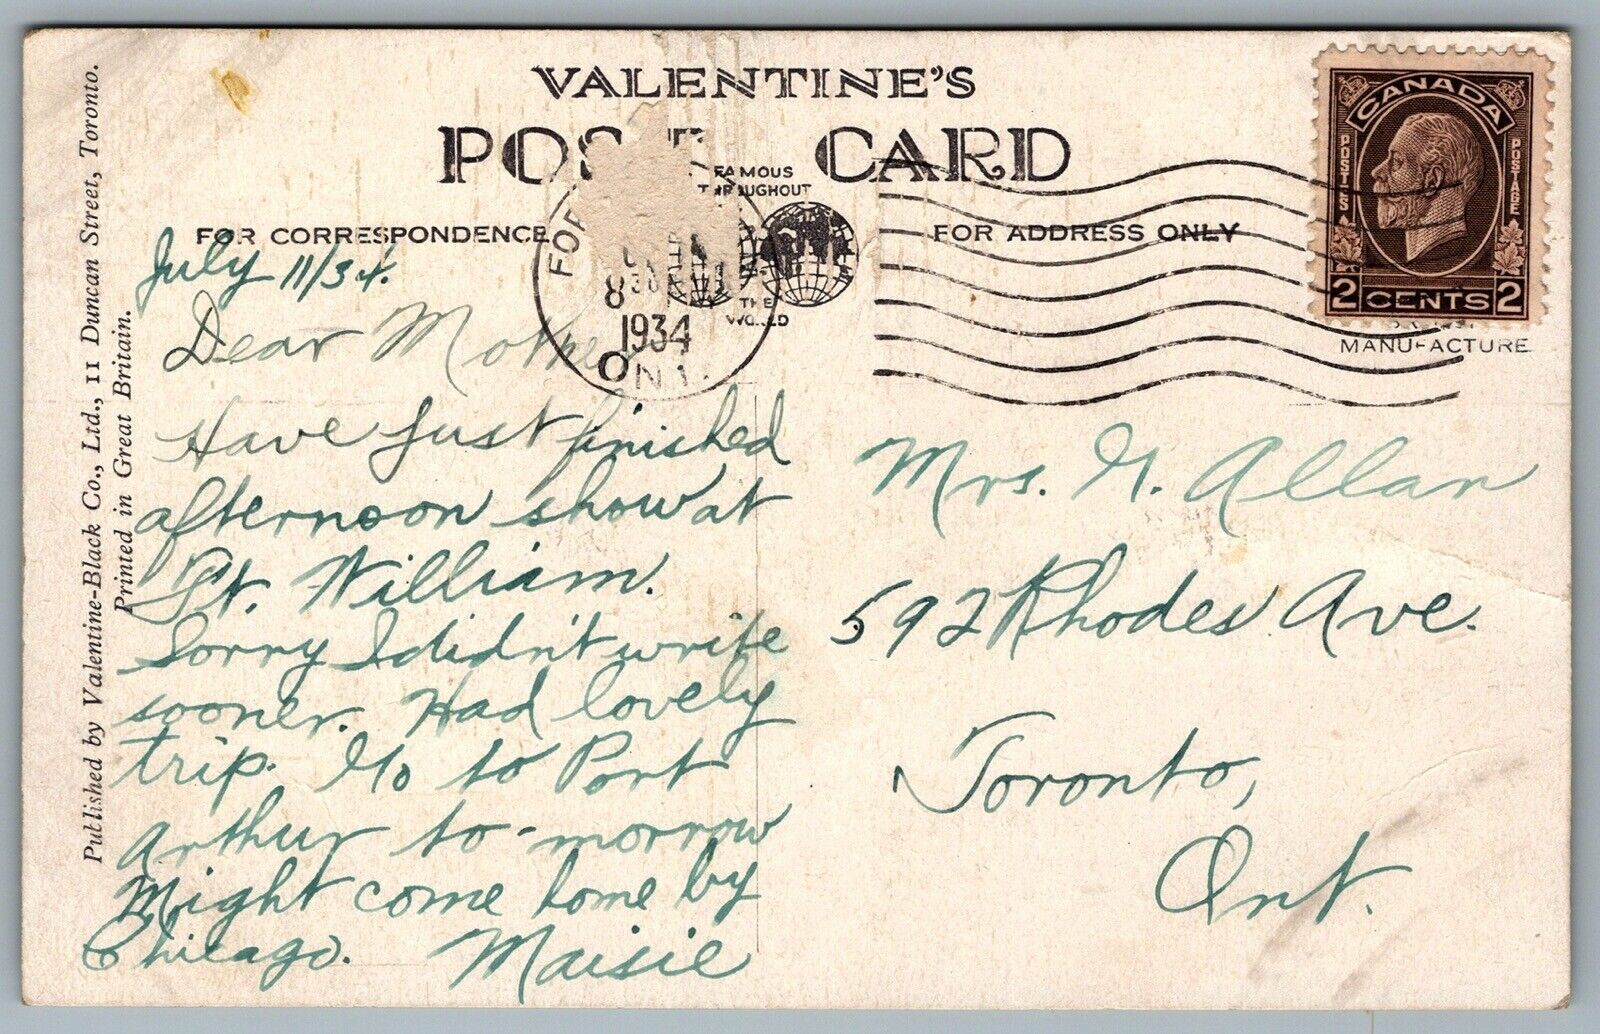 VALENTINE'S
POST CARD
FOR CORRESPONDENCE
FOR ADDRESS ONLY
FAMOUS
THROUGHOUT
THE
WORLD
FOR
8
1934
ONT.
CANADA
POSTES POSTAGE
2 CENTS 2
MANUFACTURE
July 11/34.
Dear Mother
Have just finished
afternoon show at
Ft. William.
Sorry I didn't write
sooner. Had lovely
trip. Go to Port
Arthur to-morrow
Might come home by
Chicago. Maisie
Mrs. G. Allan
592 Rhodes Ave.
Toronto,
Ont.
Published by Valentine-Black Co., Ltd., 11 Duncan Street, Toronto.
Printed in Great Britain.